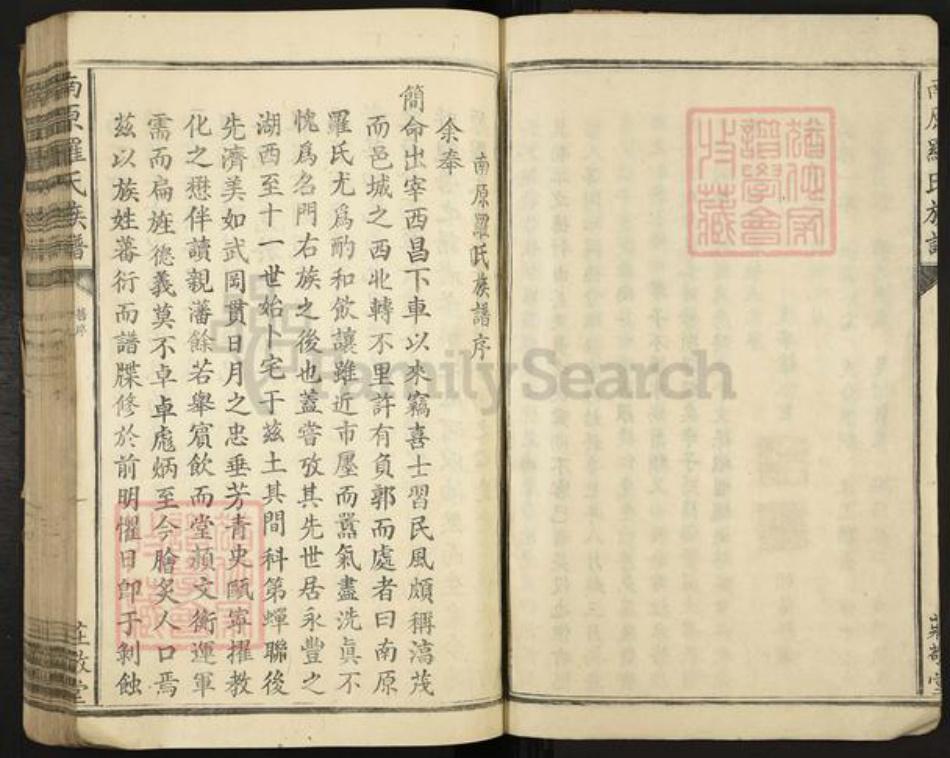 南原羅氏族譜
南原羅氏族譜序
余奉
簡命出宰西昌下車以來竊喜士習民風頗稱渾茂
而邑城之西北轉不里許有負郭而處者曰南原
羅氏尤爲酌和飲讓雖近市廛而囂氣盡洗眞不
愧爲名門右族之後也蓋嘗攷其先世居永豐之
湖西至十一世始卜宅于茲土其間科第蟬聯後
先濟美如武岡貫日月之忠垂芳青史甌寧擢教
化之懋伴讀親藩餘若舉賓飲而堂頳文衡運軍
需而扁旌德義莫不卓卓彪炳至今膾炙人口焉
茲以族姓蕃衍而譜牒修於前明懼日卽于剝蝕
南原羅氏族譜
舊序
莊敬堂
莊敬堂
譜學會
收藏
FamilySearch